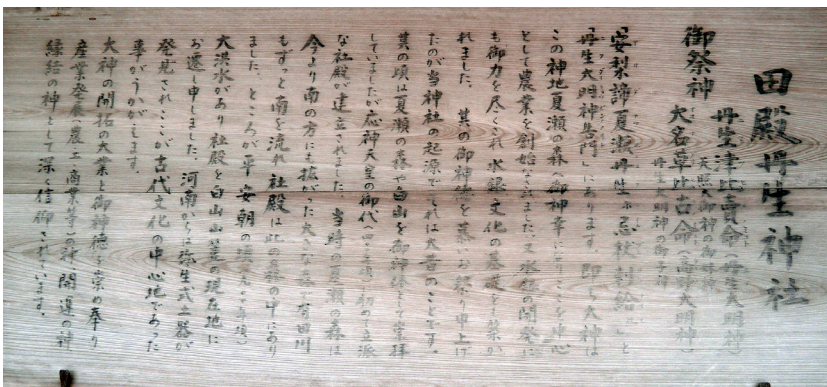 田殿丹生神社
御祭神 丹生津比賣命(丹生大明神)
天照大御神の御妹神
大名草比古命(高野大明神)
丹生大明神の御子神
「安梨諦夏瀬丹生忌杖刺給」と
「丹生大明神告門」にあります。即ち大神は
この神地夏瀬の森へ御神幸になりここを中心
として農業を創始なされました。又水銀の開発に
も御力を尽くされ水銀文化の基礎をも築か
れました。其の御神徳を慕いお祭り申上げ
たのが当神社の起源でそれは大昔のことです。
其の頃は夏瀬の森や白山を御神体として崇拝
していましたが応神天皇の御代 初めて立派
な社殿が建立されました。当時の夏瀬の森は
今より南の方にも拡がった大きな森で有田川
もずっと南を流れ社殿は此の森の中にあり
ました。ところが平安朝の
大洪水があり社殿を白山山麓の現在地に
お遷し申しました。河南からは弥生式土器が
発見されここが古代文化の中心地であった
事がうかがえます。
大神の開拓の大業と御神徳を崇め奉り
産業発展(農工商業等)の神、開運の神
縁結の神として深く信仰されています。